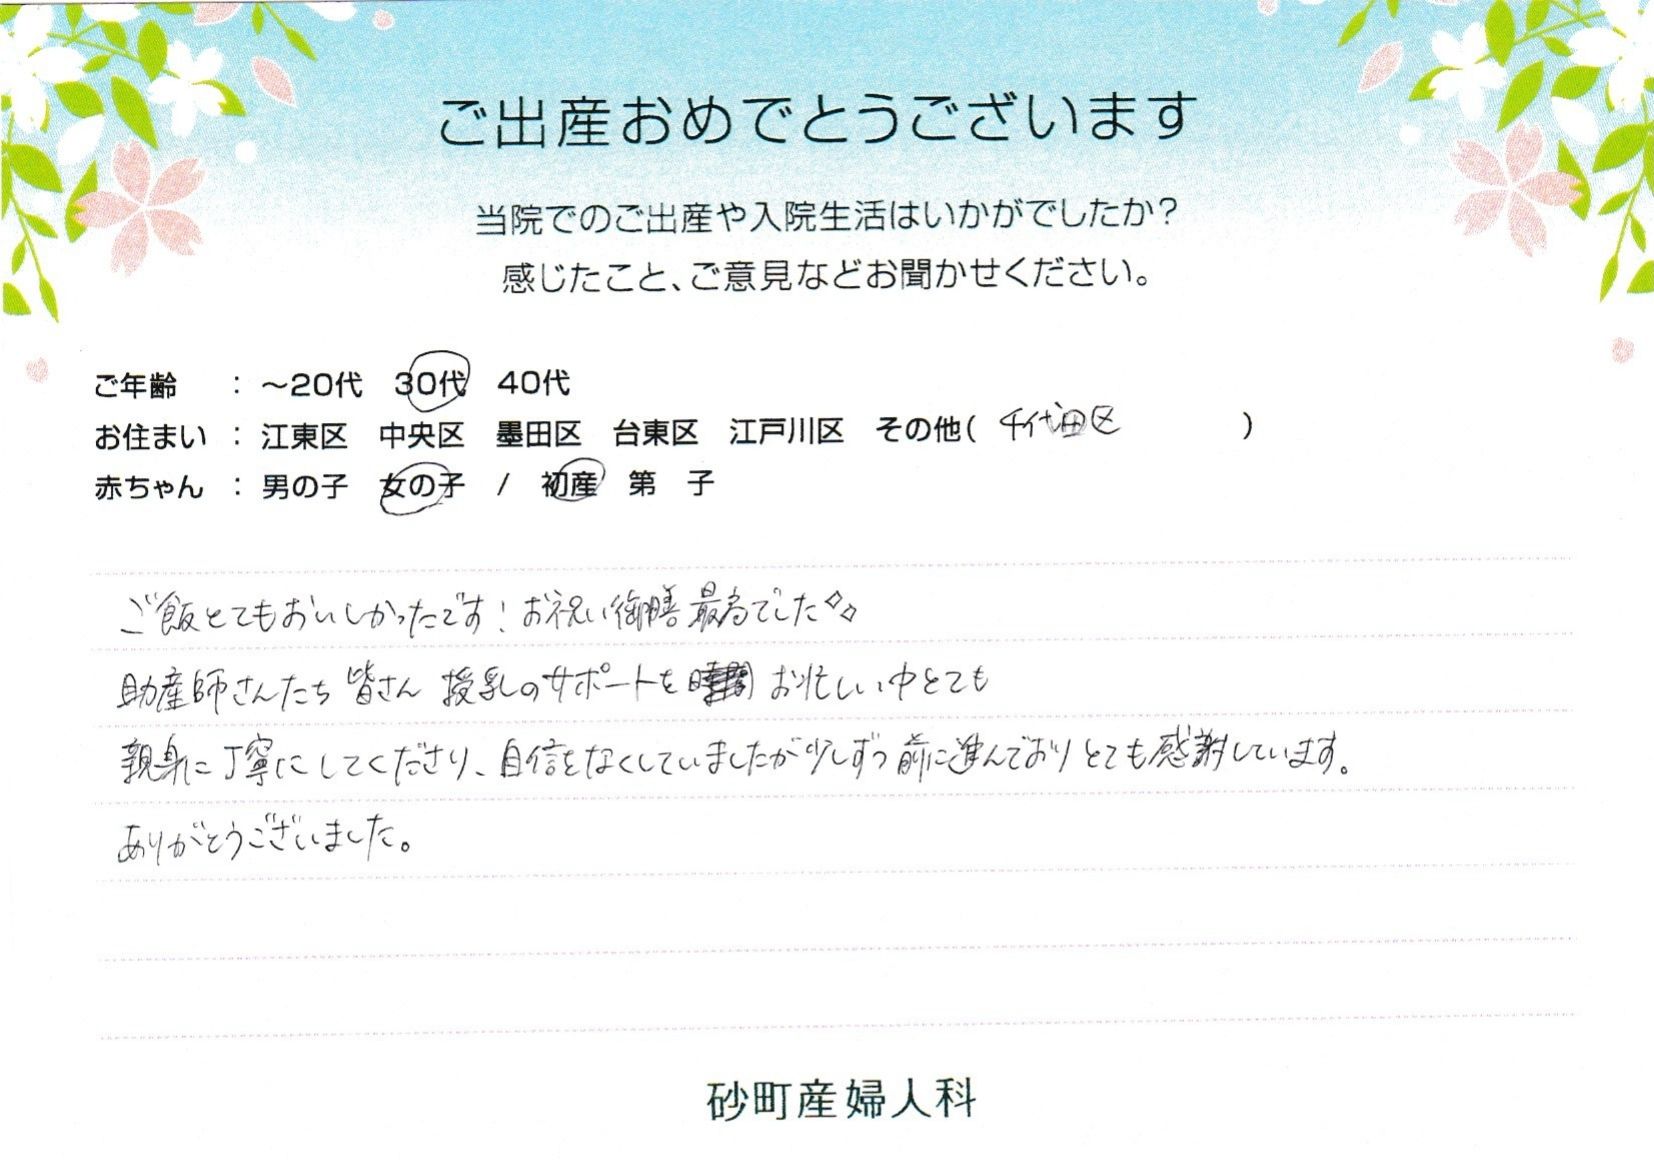 ご出産おめでとうございます
当院でのご出産や入院生活はいかがでしたか?
感じたこと、ご意見などお聞かせください。
ご年齢 : ～20代 30代 40代
お住まい : 江東区 中央区 墨田区 台東区 江戸川区 その他( 千代田区 )
赤ちゃん : 男の子 女の子 / 初産 第 子
ご飯とてもおいしかったです! お祝い御膳 最高でした
助産師さんたち 皆さん 授乳のサポートを お忙しい中とても
親身に丁寧にしてくださり、自信をなくしていましたが少しずつ前に進んでおりとても感謝しています。
ありがとうございました。
砂町産婦人科